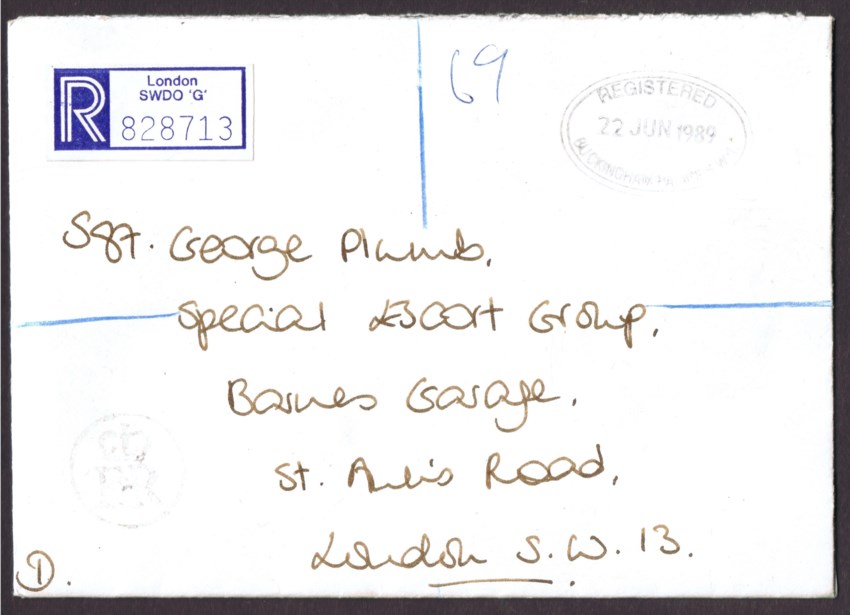 R
London
SWDO 'G'
828713
69
REGISTERED
22 JUN 1989
BUCKINGHAM PALACE
Sgt. George Plumb,
Special Escort Group,
Barnes Garage,
St. Ann's Road,
London S.W. 13.
D.